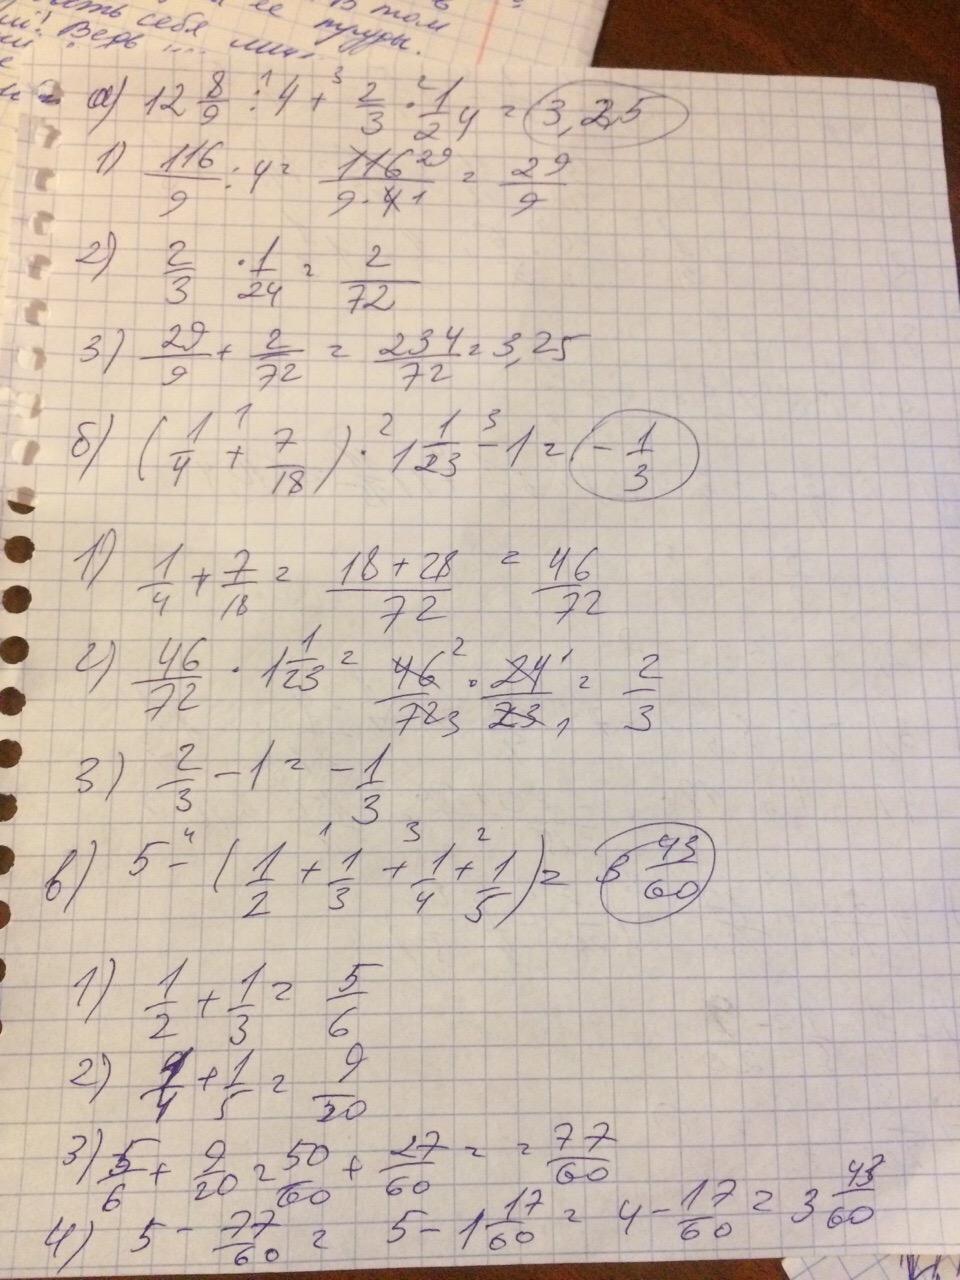 себя
Ведь
а) 12 8/9 : 4 + 2/3 · 1/24 = 3,25
1) 116/9 : 4 = 116 29/9·4 1 = 29/9
2) 2/3 · 1/24 = 2/72
3) 29/9 + 2/72 = 234/72 = 3,25
б) (1/4 + 7/18) · 1 1/23 - 1 = -1/3
1) 1/4 + 7/18 = 18+28/72 = 46/72
2) 46/72 · 1 1/23 = 46 2/72 3 · 24 1/23 1 = 2/3
3) 2/3 - 1 = -1/3
в) 5 - (1/2 + 1/3 + 1/4 + 1/5) = 3 43/60
1) 1/2 + 1/3 = 5/6
2) 1/4 + 1/5 = 9/20
3) 5/6 + 9/20 = 50/60 + 27/60 = = 77/60
4) 5 - 77/60 = 5 - 1 17/60 = 4 - 17/60 = 3 43/60